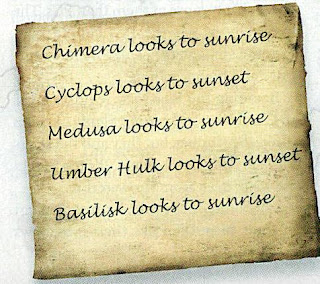 Chimera looks to sunrise
Cyclops looks to sunset
Medusa looks to sunrise
Umber Hulk looks to sunset
Basilisk looks to sunrise